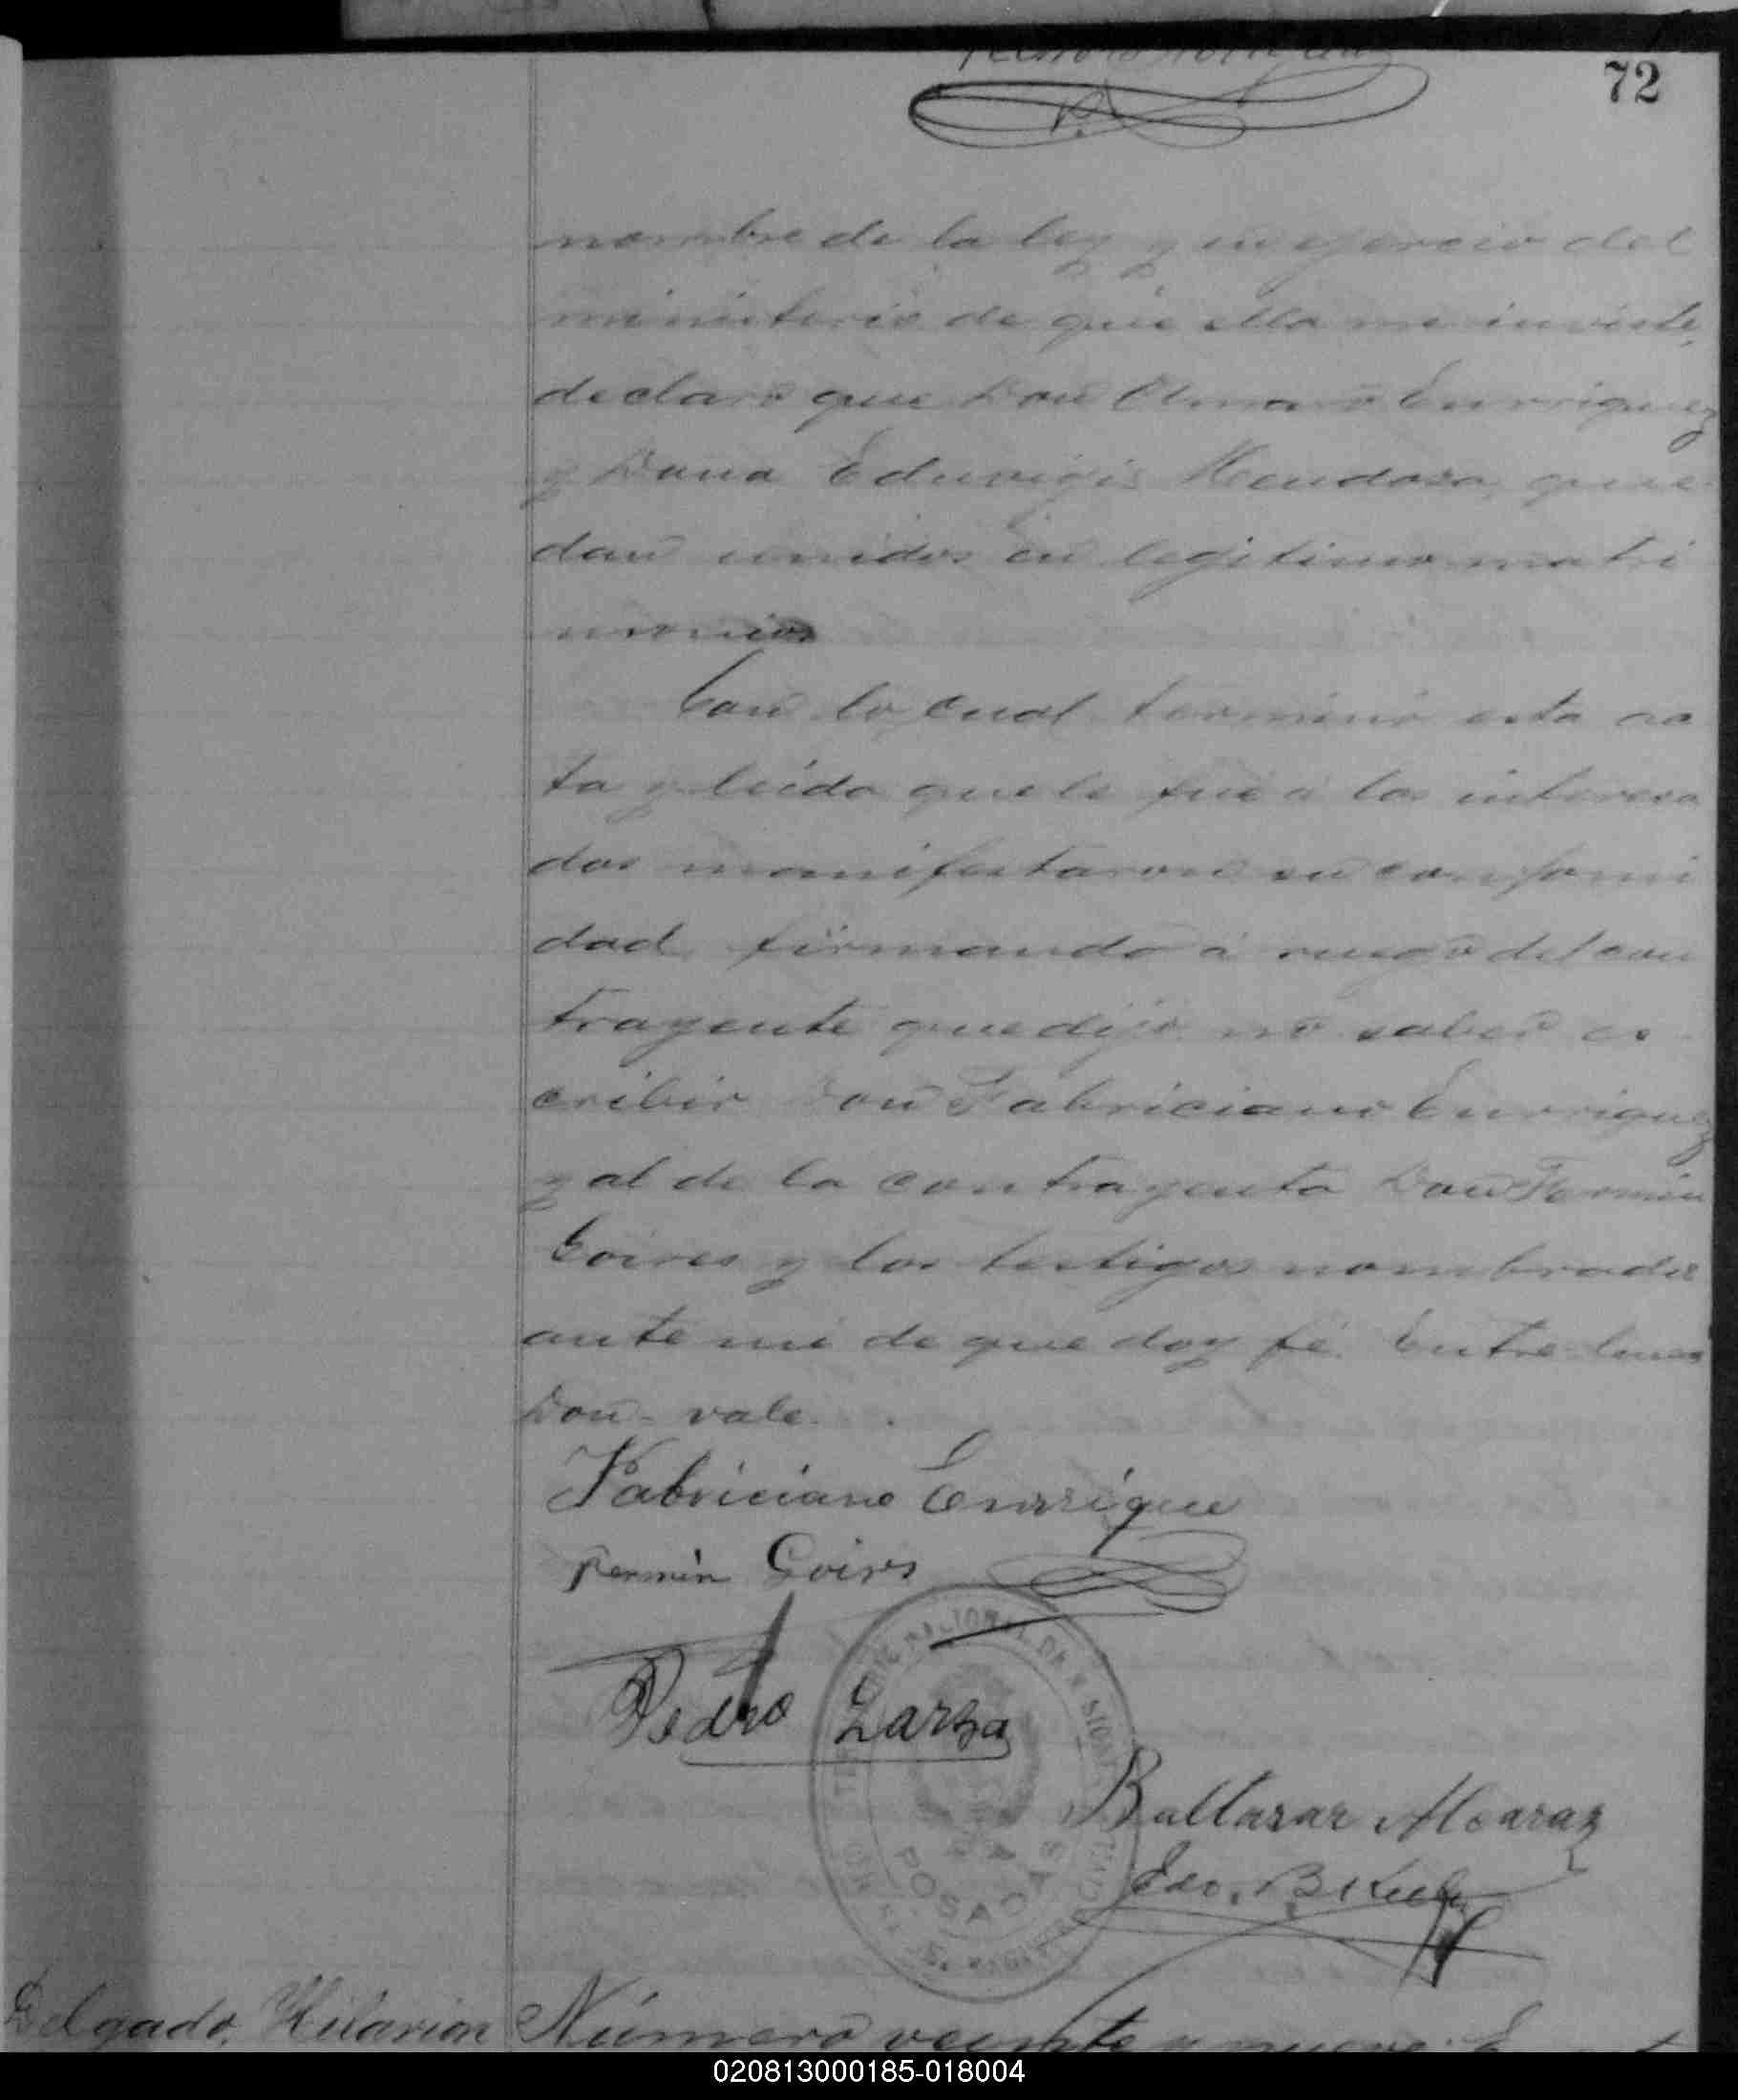 72
nombre de la ley y en ejercio del
ministerio de que ella me inviste,
declaro que Don Amaro Enrriquez
y Dona Eduvigis Mendoza que
dan unidos en legitimo matri
monio
Con lo cual terminó esta ac
ta y leida que le fue á los interesa
dos manifestaron su conformi
dad, firmando á ruego del con
trayente que dijo no saber es
cribir Don Fabriciano Enrriquez
y al de la contrayenta Don Fermin
Goires y los testigos nombrados
ante mi de que doy fé. Entre lineas
Don - vale.
Fabriciano Enrrique
Fermin Goirs
Pedro Zarza
Baltasar Alcaraz
POSADAS
Delgado, Hilarion Número veinte y nueve. E
020813000185-018004